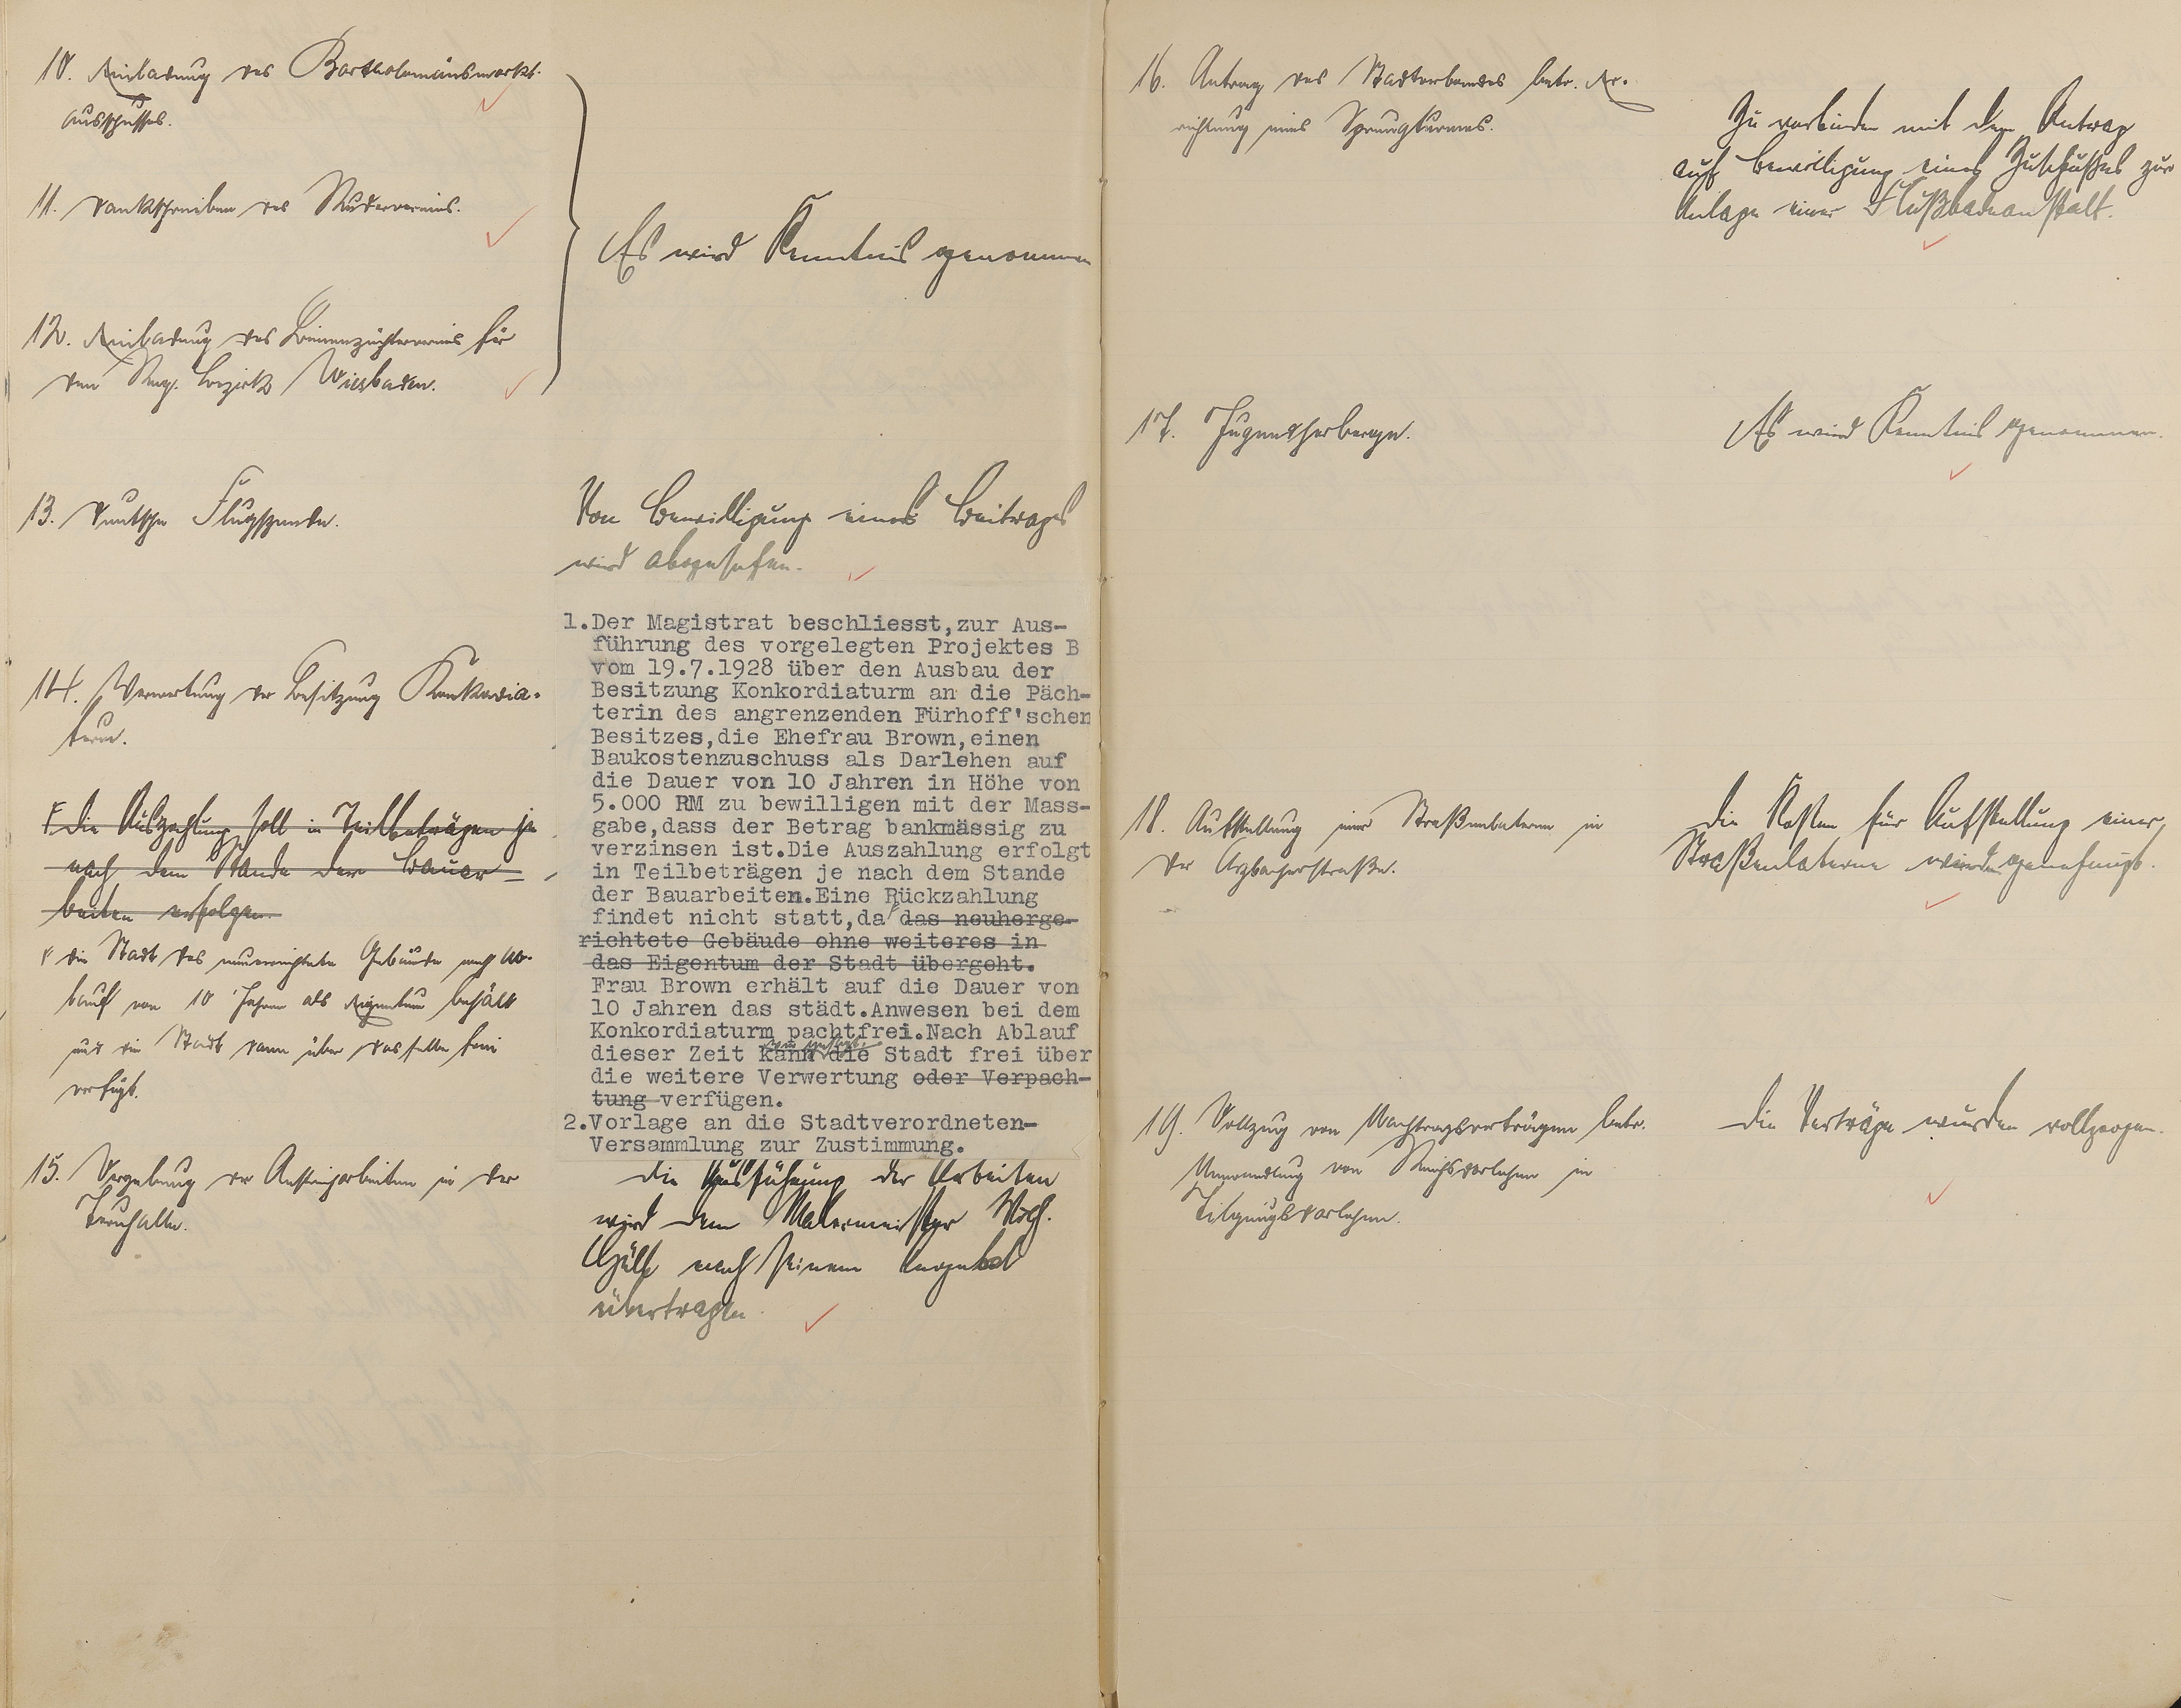 10. Einladung des Bartholomäusmarkt-
ausschusses.
11. Dankschreiben des Rudervereins.
12. Einladung des Bienenzüchtervereins für
den Reg. Bezirk Wiesbaden.
Es wird Kenntnis genommen
13. Deutsche Flugspende.
Von Bewilligung eines Beitrages
wird abgesehen.
14. Verwertung der Besitzung Konkordia-
turm.
F die Auszahlung soll in Teilbeträgen je
nach dem Stande der Bauar-
beiten erfolgen
F die Stadt das neuerrichtete Gebäude nach Ab-
lauf von 10 Jahren als Eigentum behält
und die Stadt dann über dasselbe frei
verfügt.
1.Der Magistrat beschliesst,zur Aus-
führung des vorgelegten Projektes B
vom 19.7.1928 über den Ausbau der
Besitzung Konkordiaturm an die Päch-
terin des angrenzenden Fürhoff'schen
Besitzes,die Ehefrau Brown,einen
Baukostenzuschuss als Darlehen auf
die Dauer von 10 Jahren in Höhe von
5.000 RM zu bewilligen mit der Mass-
gabe,dass der Betrag bankmässig zu
verzinsen ist.Die Auszahlung erfolgt
in Teilbeträgen je nach dem Stande
der Bauarbeiten.Eine Rückzahlung
findet nicht statt,da F das neuherge-
richtete Gebäude ohne weiteres in
das Eigentum der Stadt übergeht.
Frau Brown erhält auf die Dauer von
10 Jahren das städt.Anwesen bei dem
Konkordiaturm pachtfrei.Nach Ablauf
dieser Zeit kann die Stadt frei über
die weitere Verwertung oder Verpach-
tung verfügen.
2.Vorlage an die Stadtverordneten-
Versammlung zur Zustimmung.
15. Vergebung der Anstreicharbeiten in der
Turnhalle.
Die Ausführung der Arbeiten
wird dem Malermeister
nach seinem Angebot
übertragen.
16. Antrag des Stadtverbandes betr. Er-
richtung eines Sprungturmes.
Zu verbinden mit dem Antrag
auf Bewilligung eines Zuschußes zur
Anlage einer Flußbadeanstalt.
17. Jugendherberge.
Es wird Kenntnis genommen.
18. Aufstellung einer Straßenlaterne in
der Arzbacherstraße.
Die Kosten für Aufstellung einer
Straßenlaterne werden genehmigt.
19. Vollzug von Nachtragsverträgen betr.
Umwandlung von Reichsdarlehen in
Tilgungsdarlehen.
Die Verträge wurden vollzogen.